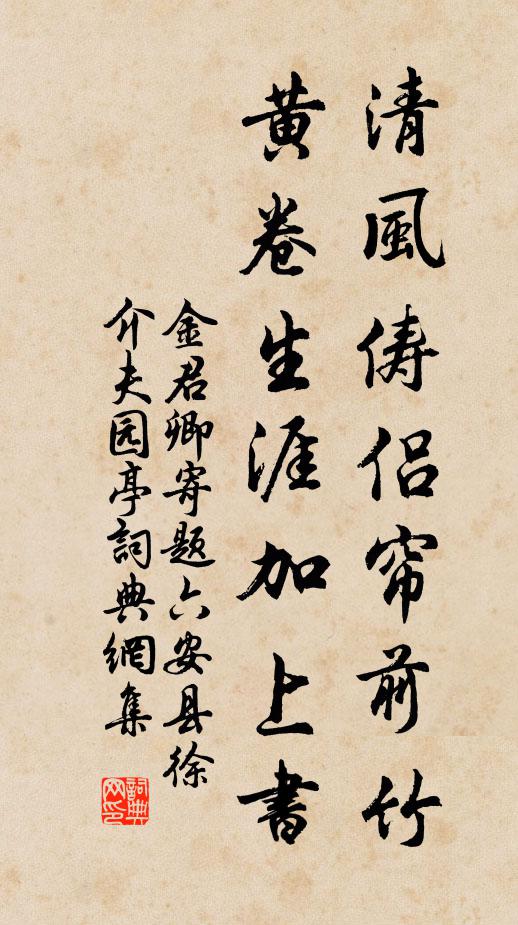 清風俦侣帘前竹
黄卷生涯加上書
金君卿寄题六安县徐
介夫园亭詞典網集
詞典網印